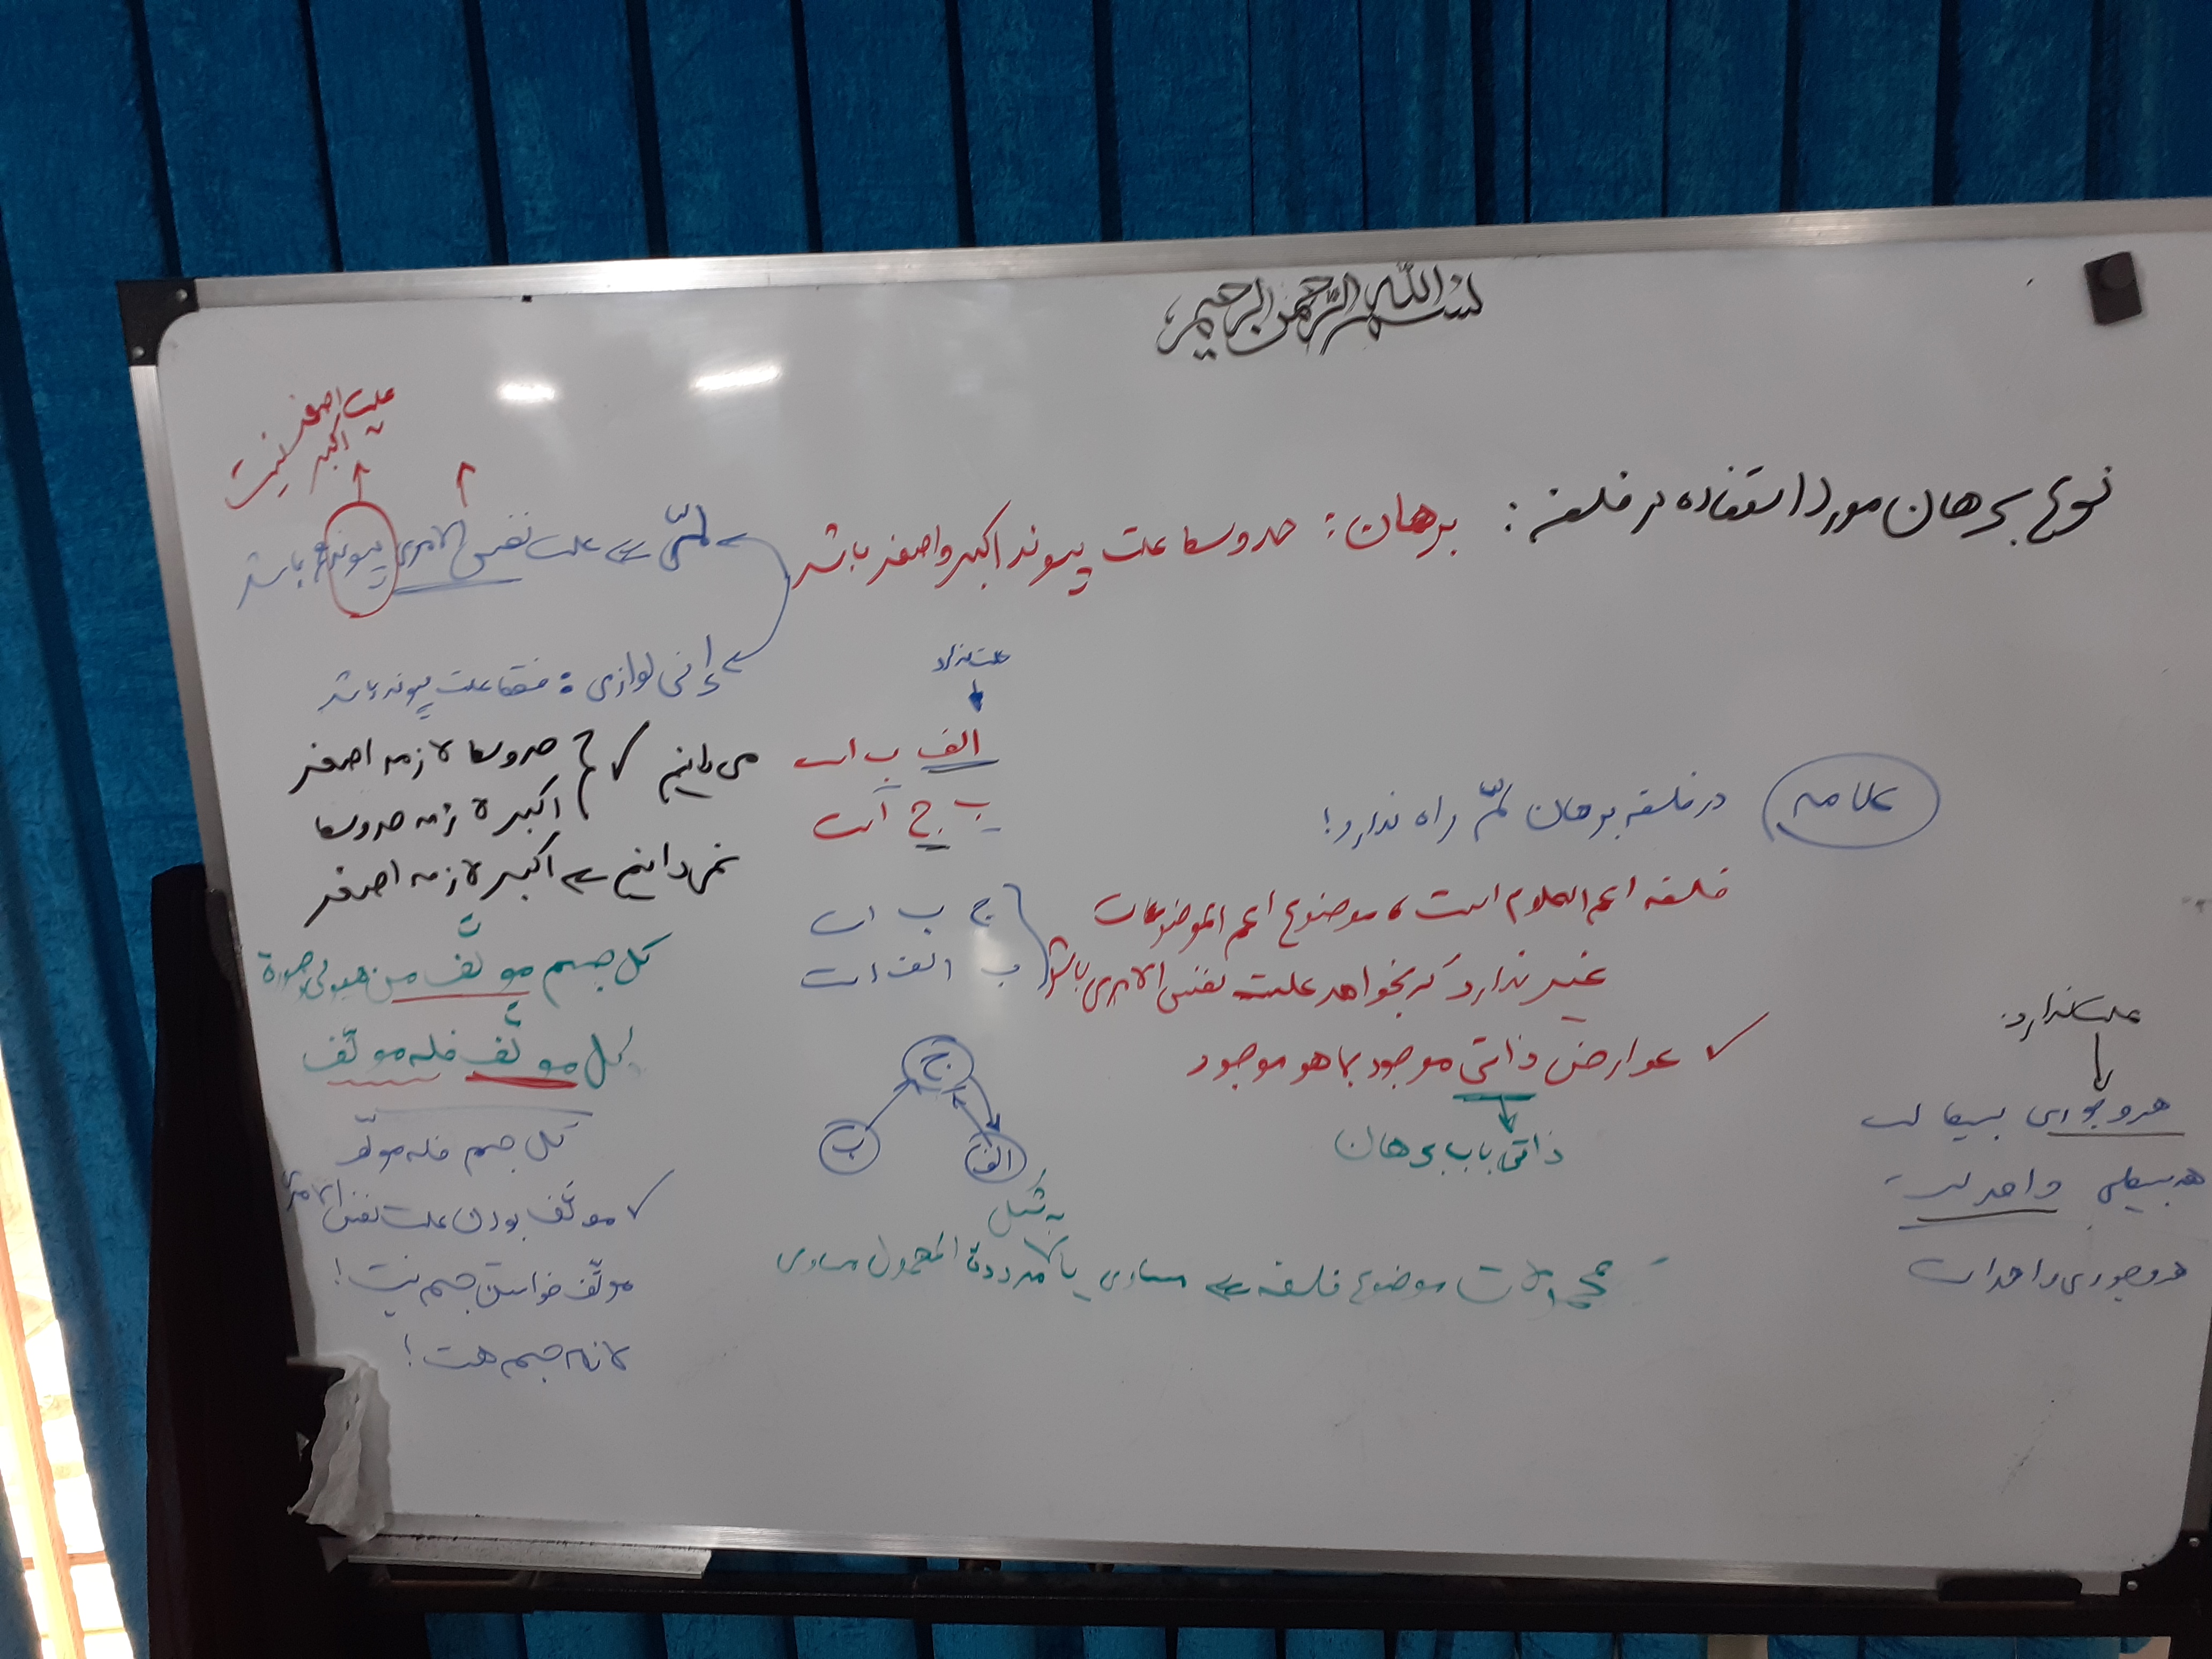 بسم الله الرحمن الرحیم
نوع برهان مورد استفاده در فلسفه:
برهان: حد وسط علت پیوند اکبر و اصغر باشد
لمّی ← علت نفس الامری پیوند هم باشد
علت اصغر
اکبر نیست
إنی لوازمی: فقط علت پیوند باشد
می‌دانیم
حد وسط لازمه اصغر
اکبر لازمه حد وسط
نمی‌دانیم ← اکبر لازمه اصغر
کل جسم مؤلَّف من هیولی و صورة
کل مؤلَّف فله مؤلِّف
کل جسم فله مؤلِّف
مؤلَّف بودن علت نفس الامری
مؤلِّف خواستن جسم نیست!
لازمه جسم هست!
علت ندارد
الف ب است
ب ج است
ج ب است
ب الف است
ج
ب
الف
علامه
در فلسفه برهان لمّ راه ندارد!
فلسفه اعم العلوم است، موضوع اعم الموضوعات
غیر ندارد که بخواهد علیت نفس الامری باشد
عوارض ذاتی موجود بما هو موجود
ذاتی باب برهان
به شکل
محمولات موضوع فلسفه ← مساوی یا مرددة المحمول مساوی
علت ندارد:
هر وجودی بسیط است
هر بسیطی واحد است
هر وجودی واحد است